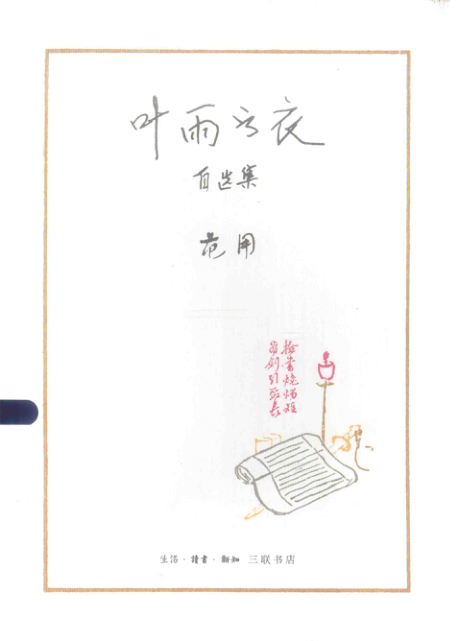 叶雨书衣
自选集
范用
检书烧烛短
看剑引杯长
生活·读书·新知 三联书店